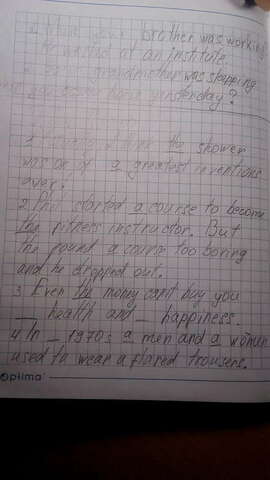 your brother was working
he worked at an institute.
grandmother was stopping
yesterday?
1 think the shower
was one of a greatest inventions
ever.
2. Phil started a course to become
the fitness instructor. But
the found a course too boring
and he dropped out.
3 Even the money can't buy you
_ health and _ happiness.
4 In _ 1970s a men and a women
used to wear a flared trousers.
Optima